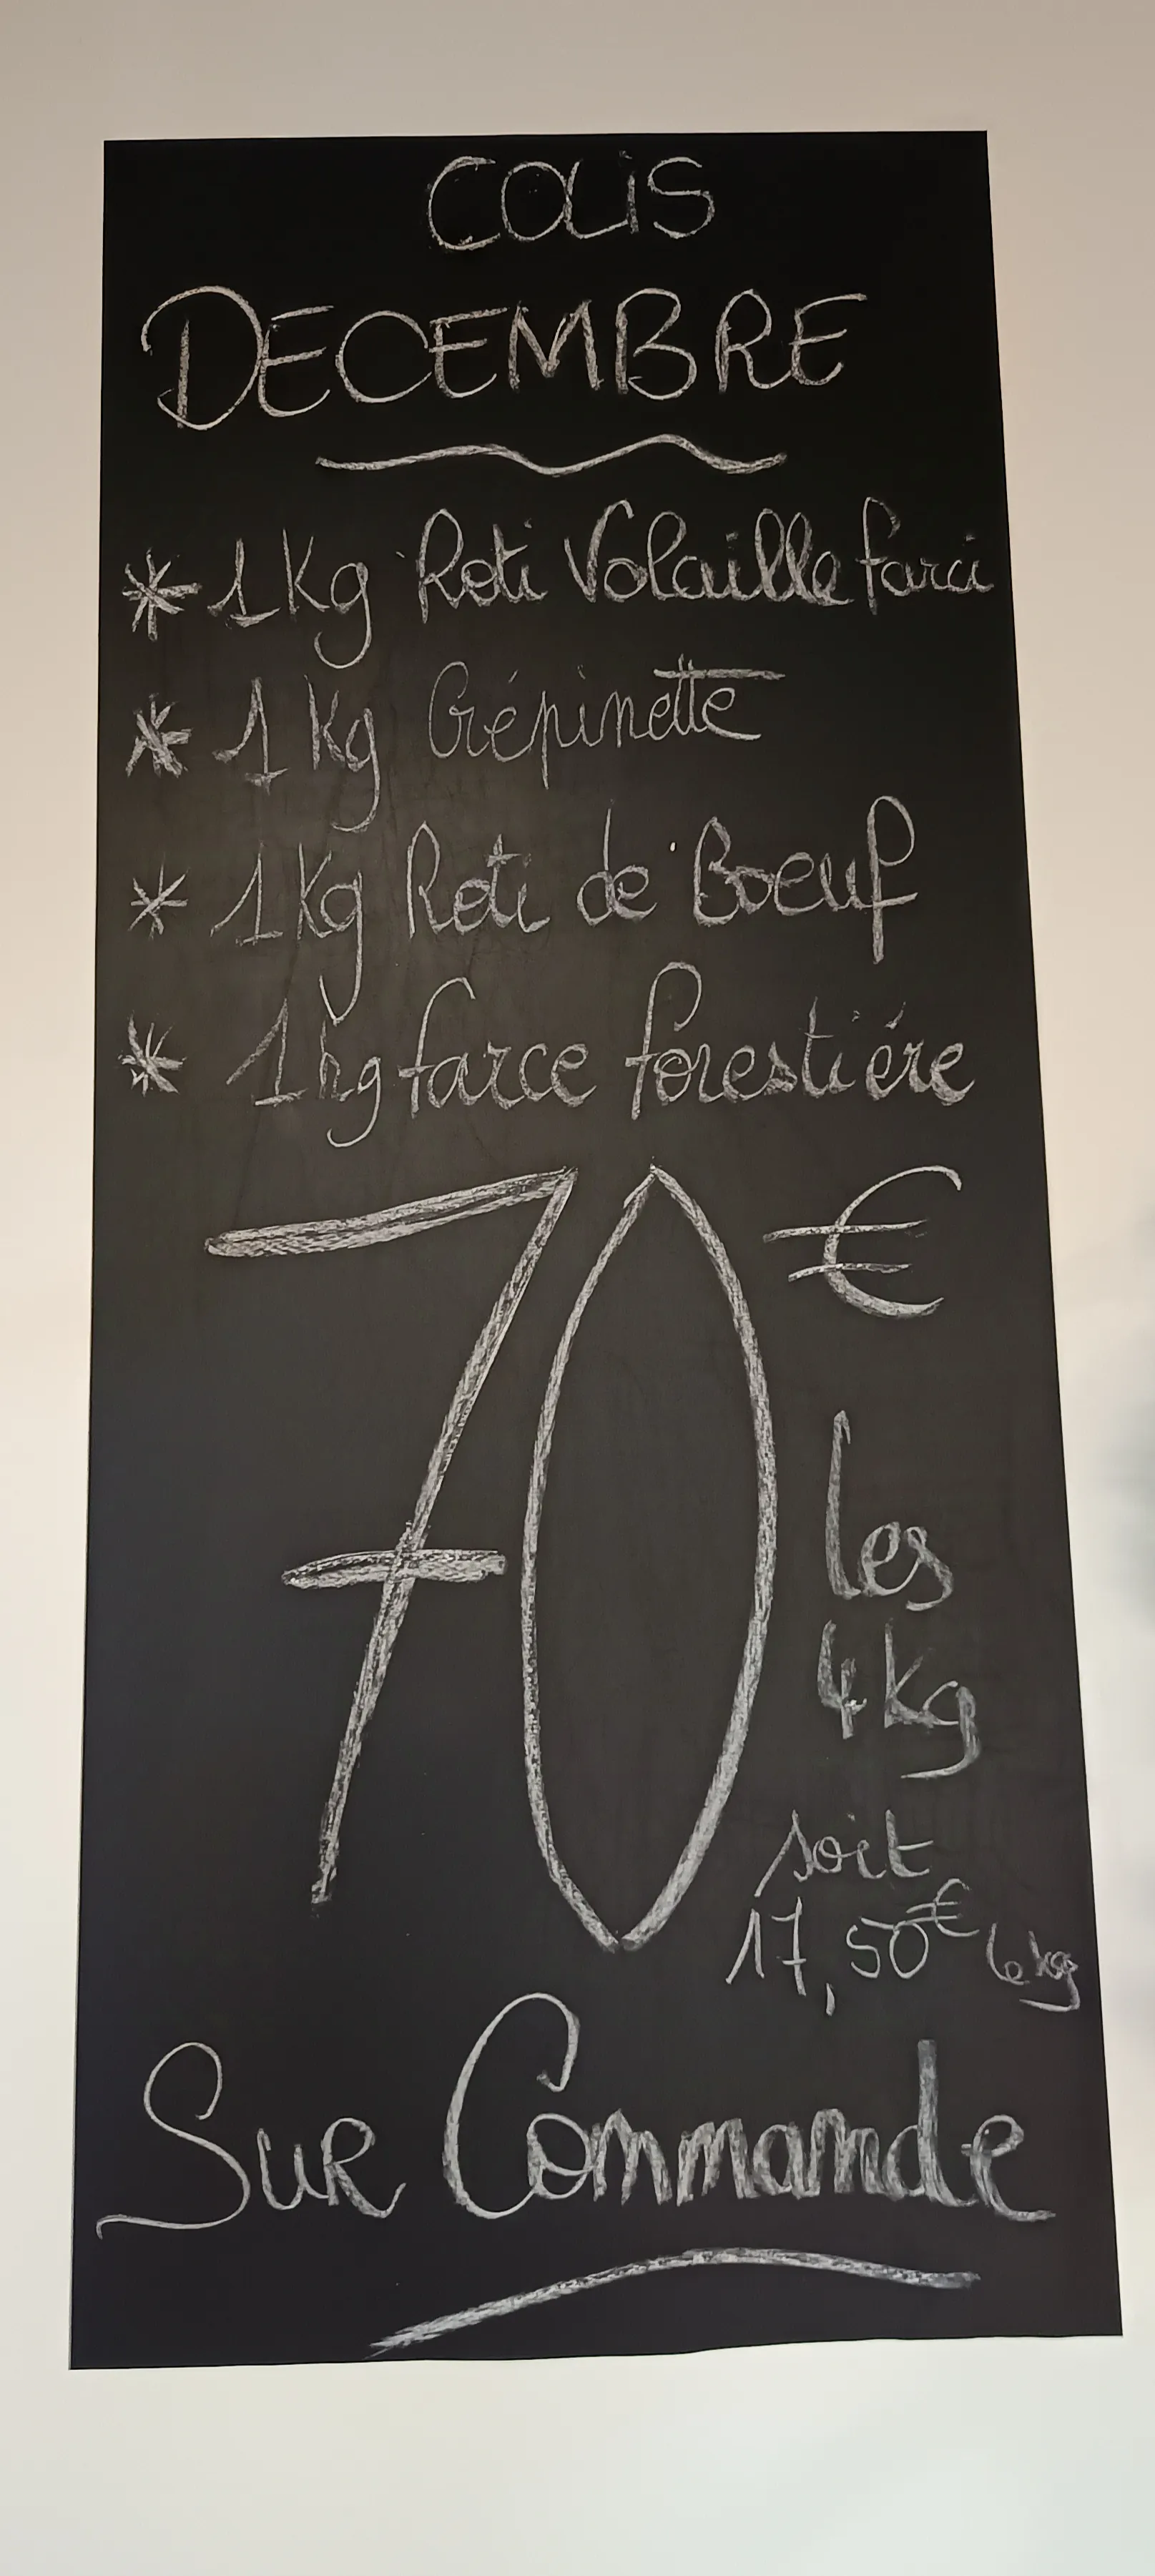 COLIS
DECEMBRE
* 1Kg Roti Volaille farci
* 1Kg Crépinette
* 1Kg Roti de Boeuf
* 1kg farce forestiére
70 €
les
4kg
soit
17,50€ le kg
Sur Commande